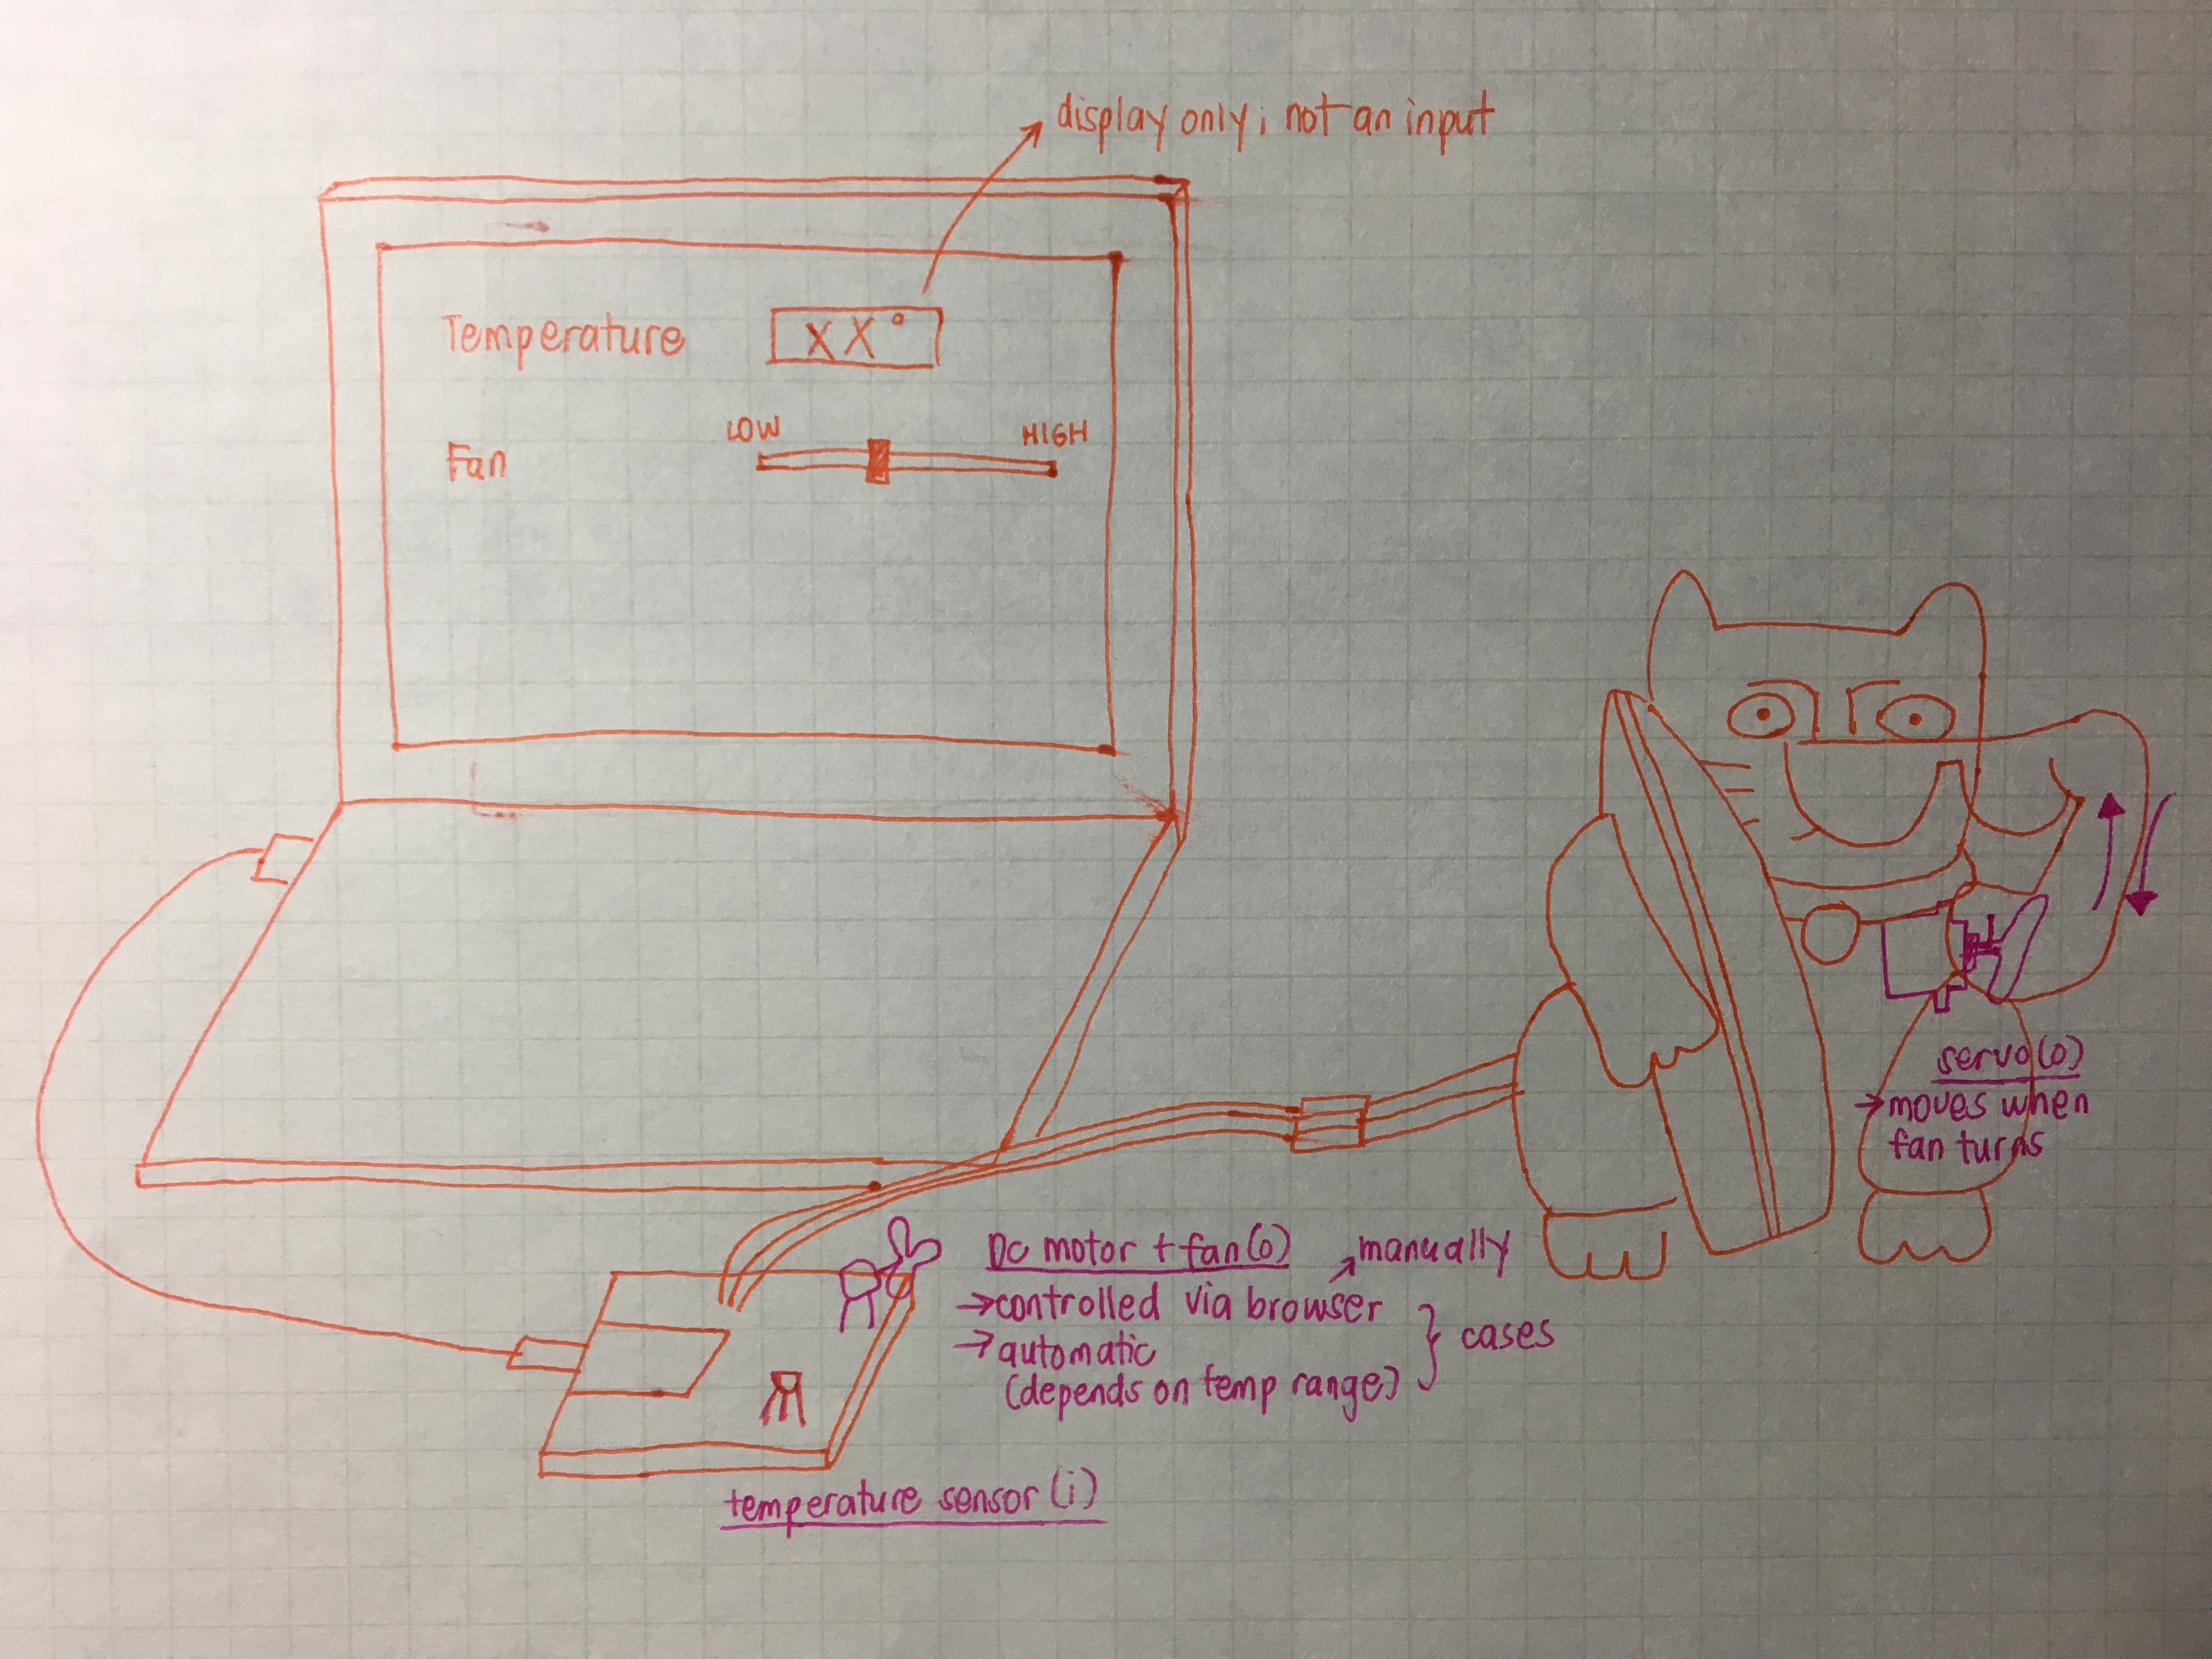 display only; not an input
Temperature XX°
LOW HIGH
Fan
servo(o)
→ moves when
fan turns
DC motor + fan(o)
↗ manually
→ controlled via browser
→ automatic
(depends on temp range)
} cases
temperature sensor (i)